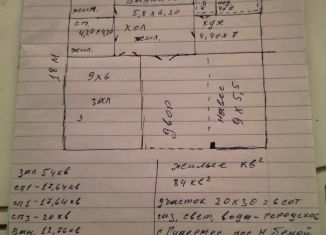 жил.
5,8 х 6,20
сп
4,20х4,20
хол
жил.
кух
4,40х7
жил.
18 м
9х6
зал
двор
навес
9х5,5
зал 54кв
сп1-17,64кв
сп1-17,64кв
сп3-20кв
Ван. 12,76кв
жилые кв²
84кв²
участок 20х30=6сот
газ, свет, вода-городское
г. Гудермес пос. Н.Беной